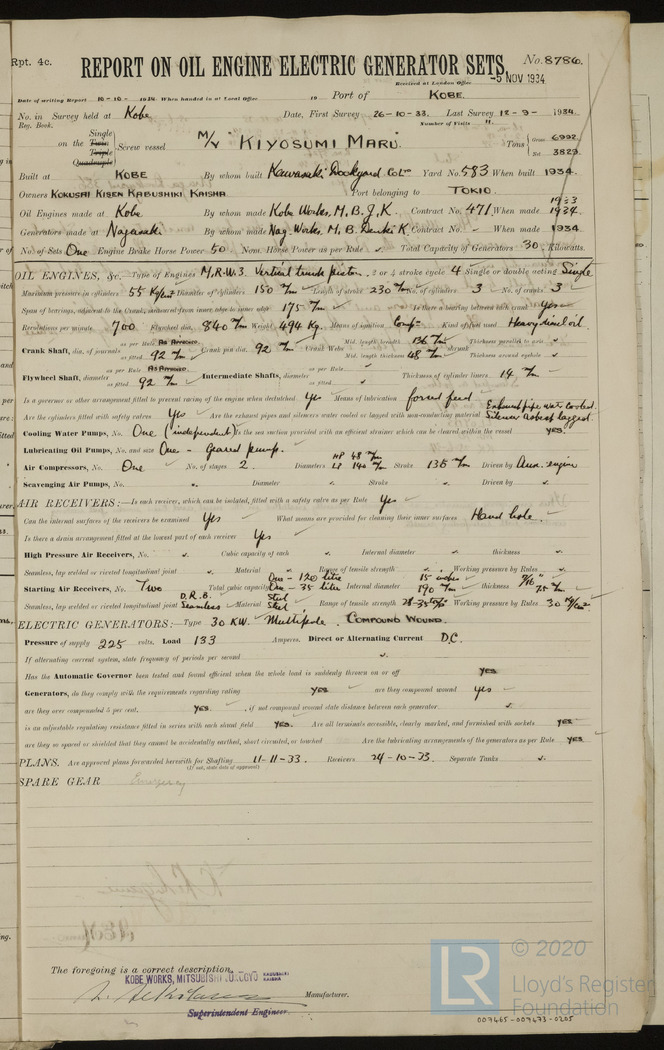 Rpt. 4c.
REPORT ON OIL ENGINE ELECTRIC GENERATOR SETS.
No. 8786.
Received at London Office
-5 NOV 1934
Date of writing Report 16-10-1934 When handed in at Local Office 19 Port of KOBE.
No. in Survey held at Kobe Date, First Survey 26-10-33. Last Survey 12-9-1934.
Reg. Book.
Number of Visits 11.
Single
on the Twin Screw vessel M/V "KIYOSUMI MARU" Tons Gross 6992.
Triple
Quadruple
Net 3829.
Built at KOBE By whom built Kawasaki Dockyard Co Ltd Yard No. 583 When built 1934.
Owners KOKUSAI KISEN KABUSHIKI KAISHA Port belonging to TOKIO.
Oil Engines made at Kobe By whom made Kobe Works, M.B.J.K. Contract No. 471 When made 1933 1934.
Generators made at Nagasaki By whom made Nag. Works, M.B. Denki K. Contract No. - When made 1934.
No. of Sets One Engine Brake Horse Power 50 Nom. Horse Power as per Rule Total Capacity of Generators 30 Kilowatts.
OIL ENGINES, &c.—Type of Engines M.R.W.3. Vertical trunk piston. 2 or 4 stroke cycle 4 Single or double acting Single
Maximum pressure in cylinders 55 Kg/cm² Diameter of cylinders 150 m/m Length of stroke 230 m/m No. of cylinders 3 No. of cranks 3
Span of bearings, adjacent to the Crank, measured from inner edge to inner edge 175 m/m Is there a bearing between each crank Yes
Revolutions per minute 700 Flywheel dia. 840 m/m Weight 494 Kg. Means of ignition Comp= Kind of fuel used Heavy diesel oil.
Crank Shaft, dia. of journals as per Rule As Approved. as fitted 92 m/m Crank pin dia. 92 m/m Crank Webs Mid. length breadth 136 m/m Mid. length thickness 48 m/m shrunk Thickness parallel to axis Thickness around eyehole
Flywheel Shaft, diameter as per Rule As Approved. as fitted 92 m/m Intermediate Shafts, diameter as per Rule as fitted Thickness of cylinder liners 14 m/m
Is a governor or other arrangement fitted to prevent racing of the engine when declutched Yes Means of lubrication forced feed
Are the cylinders fitted with safety valves Yes Are the exhaust pipes and silencers water cooled or lagged with non-conducting material Exhaust pipe water cooled. Silencer asbestos lagged.
Cooling Water Pumps, No. One (independent) Is the sea suction provided with an efficient strainer which can be cleared within the vessel YES.
Lubricating Oil Pumps, No. and size One - Geared pump.
Air Compressors, No. One No. of stages 2. Diameters HP 48 m/m LP 140 m/m Stroke 135 m/m Driven by Aux. engine
Scavenging Air Pumps, No. Diameter Stroke Driven by
AIR RECEIVERS:—Is each receiver, which can be isolated, fitted with a safety valve as per Rule Yes
Can the internal surfaces of the receivers be examined Yes What means are provided for cleaning their inner surfaces Hand hole.
Is there a drain arrangement fitted at the lowest part of each receiver Yes
High Pressure Air Receivers, No. Cubic capacity of each Internal diameter thickness
Seamless, lap welded or riveted longitudinal joint Material Range of tensile strength Working pressure by Rules
Starting Air Receivers, No. Two Total cubic capacity One - 120 litre One - 35 litre Internal diameter 15 inches 190 m/m thickness 7/16" 7.5 m/m
Seamless, lap welded or riveted longitudinal joint D.R.B. Seamless Material Steel Steel Range of tensile strength Working pressure by Rules 30 Kg/cm²
ELECTRIC GENERATORS:—Type 30 KW. Multipole. COMPOUND WOUND.
Pressure of supply 225 volts. Load 133 Amperes. Direct or Alternating Current D.C.
If alternating current system, state frequency of periods per second
Has the Automatic Governor been tested and found efficient when the whole load is suddenly thrown on or off YES
Generators, do they comply with the requirements regarding rating YES are they compound wound yes
are they over compounded 5 per cent. YES. , if not compound wound state distance between each generator.
is an adjustable regulating resistance fitted in series with each shunt field YES. Are all terminals accessible, clearly marked, and furnished with sockets YES
are they so spaced or shielded that they cannot be accidentally earthed, short circuited, or touched Are the lubricating arrangements of the generators as per Rule YES
PLANS. Are approved plans forwarded herewith for Shafting 11-11-33. Receivers 24-10-33. Separate Tanks
(If not, state date of approval)
SPARE GEAR
The foregoing is a correct description,
KOBE WORKS, MITSUBISHI ZOSEN KABUSHIKI KAISHA
Manufacturer.
Superintendent Engineer.
LR
© 2020
Lloyd's Register
Foundation
007465-007473-0205